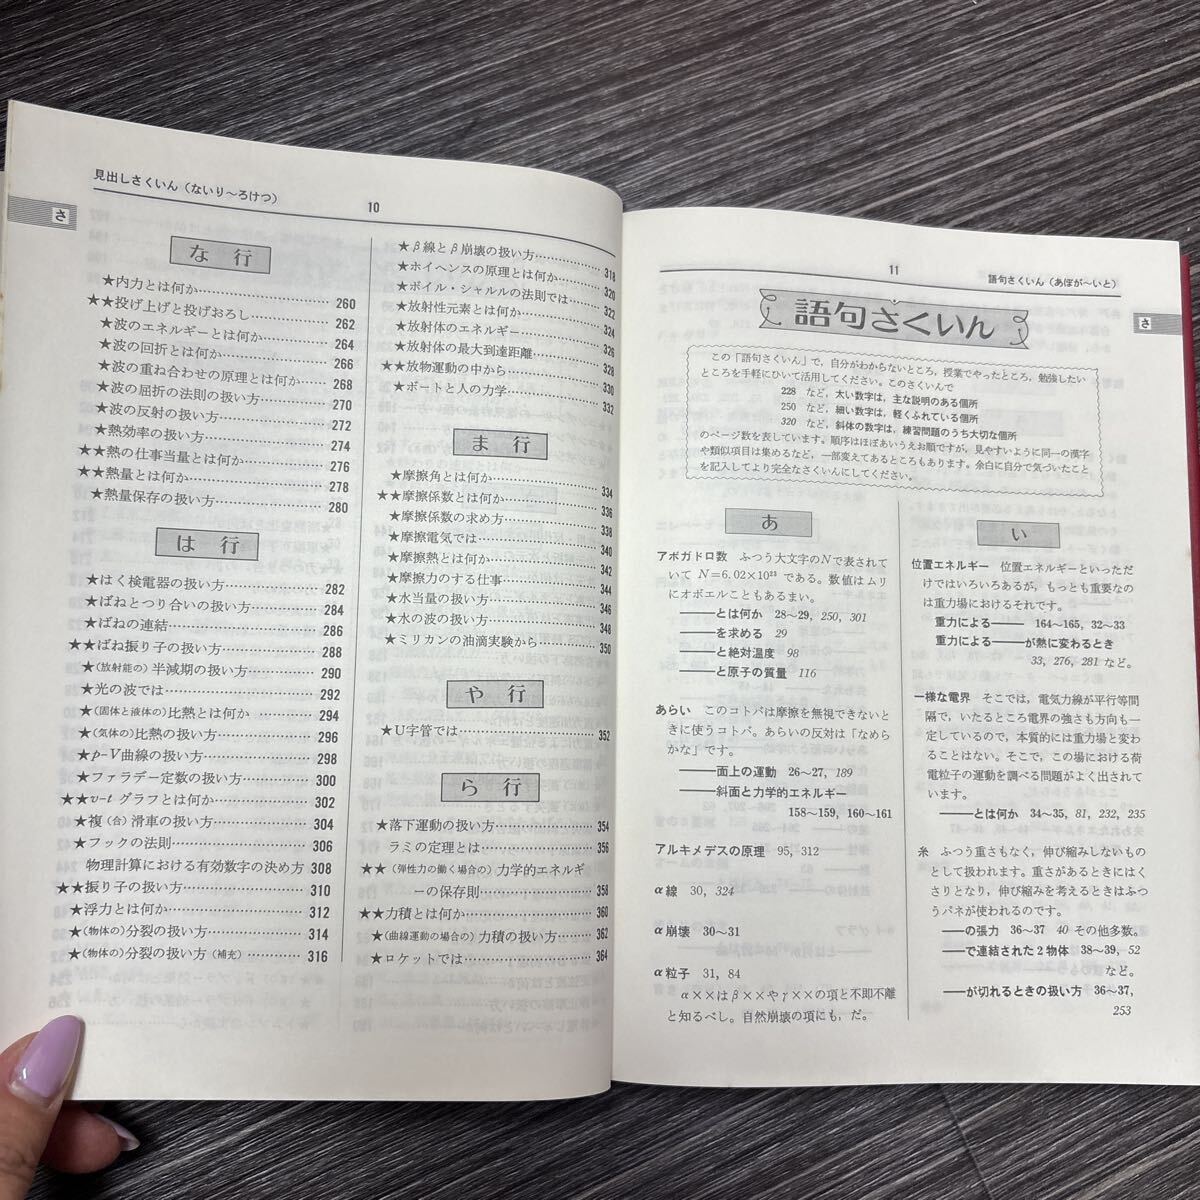 見出しさくいん（ないり〜ろけつ）
10
さ
な 行
★内力とは何か 260
★★投げ上げと投げおろし 262
★波のエネルギーとは何か 264
★波の回折とは何か 266
★波の重ね合わせの原理とは何か 268
★波の屈折の法則の扱い方 270
★波の反射の扱い方 272
★熱効率の扱い方 274
★★熱の仕事当量とは何か 276
★★熱量とは何か 278
★熱量保存の扱い方 280
は 行
★はく検電器の扱い方 282
★ばねとつり合いの扱い方 284
★ばねの連結 286
★★ばね振り子の扱い方 288
★(放射能の)半減期の扱い方 290
★光の波では 292
★(固体と液体の)比熱とは何か 294
★(気体の)比熱の扱い方 296
★p-V曲線の扱い方 298
★ファラデー定数の扱い方 300
★★v-tグラフとは何か 302
★複(合)滑車の扱い方 304
★フックの法則 306
物理計算における有効数字の決め方 308
★★振り子の扱い方 310
★浮力とは何か 312
★(物体の)分裂の扱い方 314
★(物体の)分裂の扱い方(補充) 316
★β線とβ崩壊の扱い方 318
★ホイヘンスの原理とは何か 320
★ボイル・シャルルの法則では 322
★放射性元素とは何か 324
★放射体のエネルギー 326
★放射体の最大到達距離 328
★★放物運動の中から 330
★ボートと人の力学 332
ま 行
★摩擦角とは何か 334
★★摩擦係数とは何か 336
★摩擦係数の求め方 338
★摩擦電気では 340
★摩擦熱とは何か 342
★摩擦力のする仕事 344
★水当量の扱い方 346
★水の波の扱い方 348
★ミリカンの油滴実験から 350
や 行
★U字管では 352
ら 行
★落下運動の扱い方 354
ラミの定理とは 356
★★(弾性力の働く場合の)力学的エネルギ
ーの保存則 358
★★力積とは何か 360
★(曲線運動の場合の)力積の扱い方 362
★ロケットでは 364
11
語句さくいん（あぼが〜いと）
さ
語句さくいん
この「語句さくいん」で，自分がわからないところ，授業でやったところ，勉強したい
ところを手軽にひいて活用してください。このさくいんで
228 など，太い数字は，主な説明のある個所
250 など，細い数字は，軽くふれている個所
320 など，斜体の数字は，練習問題のうち大切な個所
のページ数を表しています。順序はほぼあいうえお順ですが，見やすいように同一の漢字
や類似項目は集めるなど，一部変えてあるところもあります。余白に自分で気づいたこと
を記入してより完全なさくいんにしてください。
あ
アボガドロ数 ふつう大文字のNで表されて
いて N=6.02×10²³ である。数値はムリ
にオボエルこともあるまい。
――とは何か 28〜29, 250, 301
――を求める 29
――と絶対温度 98
――と原子の質量 116
あらい このコトバは摩擦を無視できないと
きに使うコトバ。あらいの反対は「なめら
かな」です。
――面上の運動 26〜27, 189
――斜面と力学的エネルギー
158〜159, 160〜161
アルキメデスの原理 95, 312
α線 30, 324
α崩壊 30〜31
α粒子 31, 84
α××はβ××やγ××の項と不即不離
と知るべし。自然崩壊の項にも，だ。
い
位置エネルギー 位置エネルギーといっただ
けではいろいろあるが，もっとも重要なの
は重力場におけるそれです。
重力による―― 164〜165, 32〜33
重力による――が熱に変わるとき
33, 276, 281 など。
一様な電界 そこでは，電気力線が平行等間
隔で，いたるところ電界の強さも方向も一
定しているので，本質的には重力場と変わ
ることはない。そこで，この場における荷
電粒子の運動を調べる問題がよく出されて
います。
――とは何か 34〜35, 81, 232, 235
糸 ふつう重さもなく，伸び縮みしないもの
として扱われます。重さがあるときにはく
さりとなり，伸び縮みを考えるときはふつ
うバネが使われるのです。
――の張力 36〜37 40 その他多数。
――で連結された2物体 38〜39, 52
など。
――が切れるときの扱い方 36〜37,
253